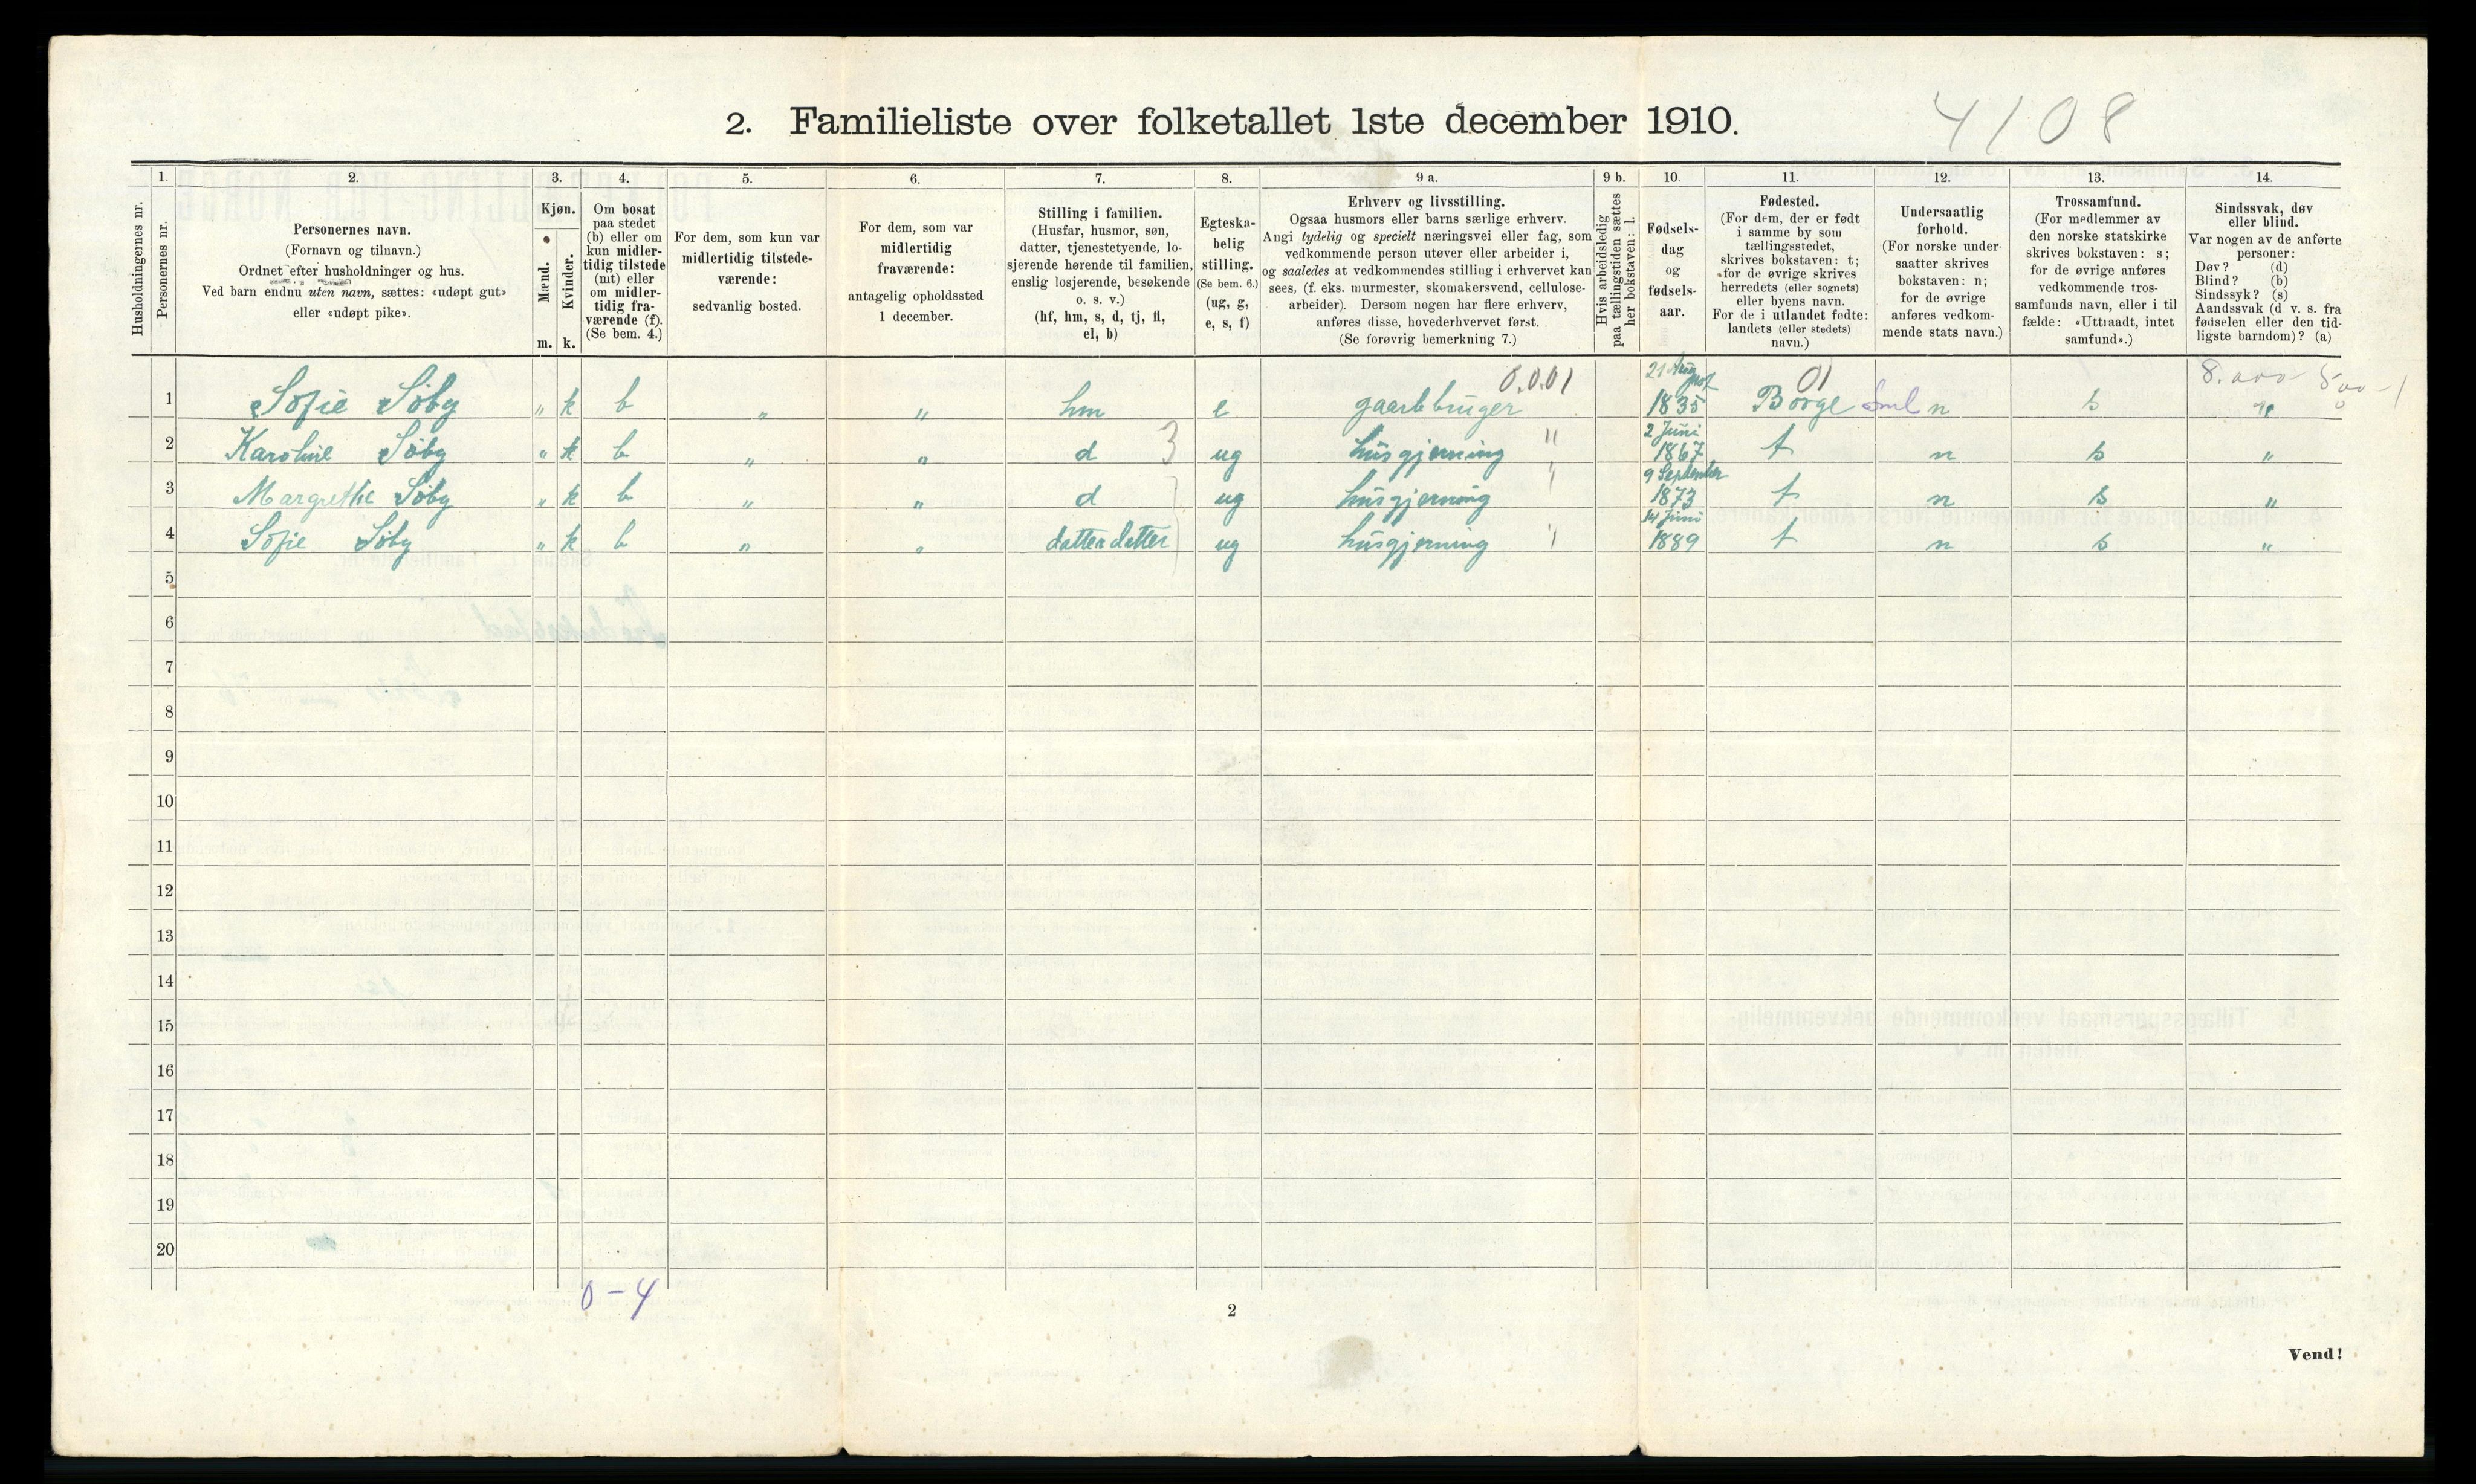 4108
2. Familieliste over folketallet 1ste december 1910.
1. 2. 3. 4. 5. 6. 7. 8. 9 a. 9 b. 10. 11. 12. 13. 14.
Husholdningernes nr.
Personernes nr.
Personernes navn.
(Fornavn og tilnavn.)
Ordnet efter husholdninger og hus.
Ved barn endnu uten navn, sættes: «udøpt gut»
eller «udøpt pike».
Kjøn.
Mænd.
Kvinder.
m. k.
Om bosat
paa stedet
(b) eller om
kun midler-
tidig tilstede
(mt) eller
om midler-
tidig fra-
værende (f).
(Se bem. 4.)
For dem, som kun var
midlertidig tilstede-
værende:
sedvanlig bosted.
For dem, som var
midlertidig
fraværende:
antagelig opholdssted
1 december.
Stilling i familien.
(Husfar, husmor, søn,
datter, tjenestetyende, lo-
sjerende hørende til familien,
enslig losjerende, besøkende
o. s. v.)
(hf, hm, s, d, tj, fl,
el, b)
Egteska-
belig
stilling.
(Se bem. 6.)
(ug, g,
e, s, f)
Erhverv og livsstilling.
Ogsaa husmors eller barns særlige erhverv.
Angi tydelig og specielt næringsvei eller fag, som
vedkommende person utøver eller arbeider i,
og saaledes at vedkommendes stilling i erhvervet kan
sees, (f. eks. murmester, skomakersvend, cellulose-
arbeider). Dersom nogen har flere erhverv,
anføres disse, hovederhvervet først.
(Se forøvrig bemerkning 7.)
Hvis arbeidsledig
paa tællingstiden sættes
her bokstaven: l.
Fødsels-
dag
og
fødsels-
aar.
Fødested.
(For dem, der er født
i samme by som
tællingsstedet,
skrives bokstaven: t;
for de øvrige skrives
herredets (eller sognets)
eller byens navn.
For de i utlandet fødte:
landets (eller stedets)
navn.)
Undersaatlig
forhold.
(For norske under-
saatter skrives
bokstaven: n;
for de øvrige
anføres vedkom-
mende stats navn.)
Trossamfund.
(For medlemmer av
den norske statskirke
skrives bokstaven: s;
for de øvrige anføres
vedkommende tros-
samfunds navn, eller i til
fælde: «Uttraadt, intet
samfund».)
Sindssvak, døv
eller blind.
Var nogen av de anførte
personer:
Døv? (d)
Blind? (b)
Sindssyk? (s)
Aandssvak (d v. s. fra
fødselen eller den tid-
ligste barndom)? (a)
1 Sofie Søby „ k b „ „ hm e gaardbruger 0.0.01 21 August 1835 Borge 01 Sml n s „ 8.000 500 - 1
2 Karoline Søby „ k b „ „ d 3 ug husgjerning " 2 Juni 1867 t n s „
3 Margrethe Søby „ k b „ „ d ug husgjerning " 9 September 1873 t n s „
4 Sofie Søby „ k b „ „ datterdatter ug husgjerning " 14 Juni 1889 t n s „
5
6
7
8
9
10
11
12
13
14
15
16
17
18
19
20
0 - 4
2
Vend!